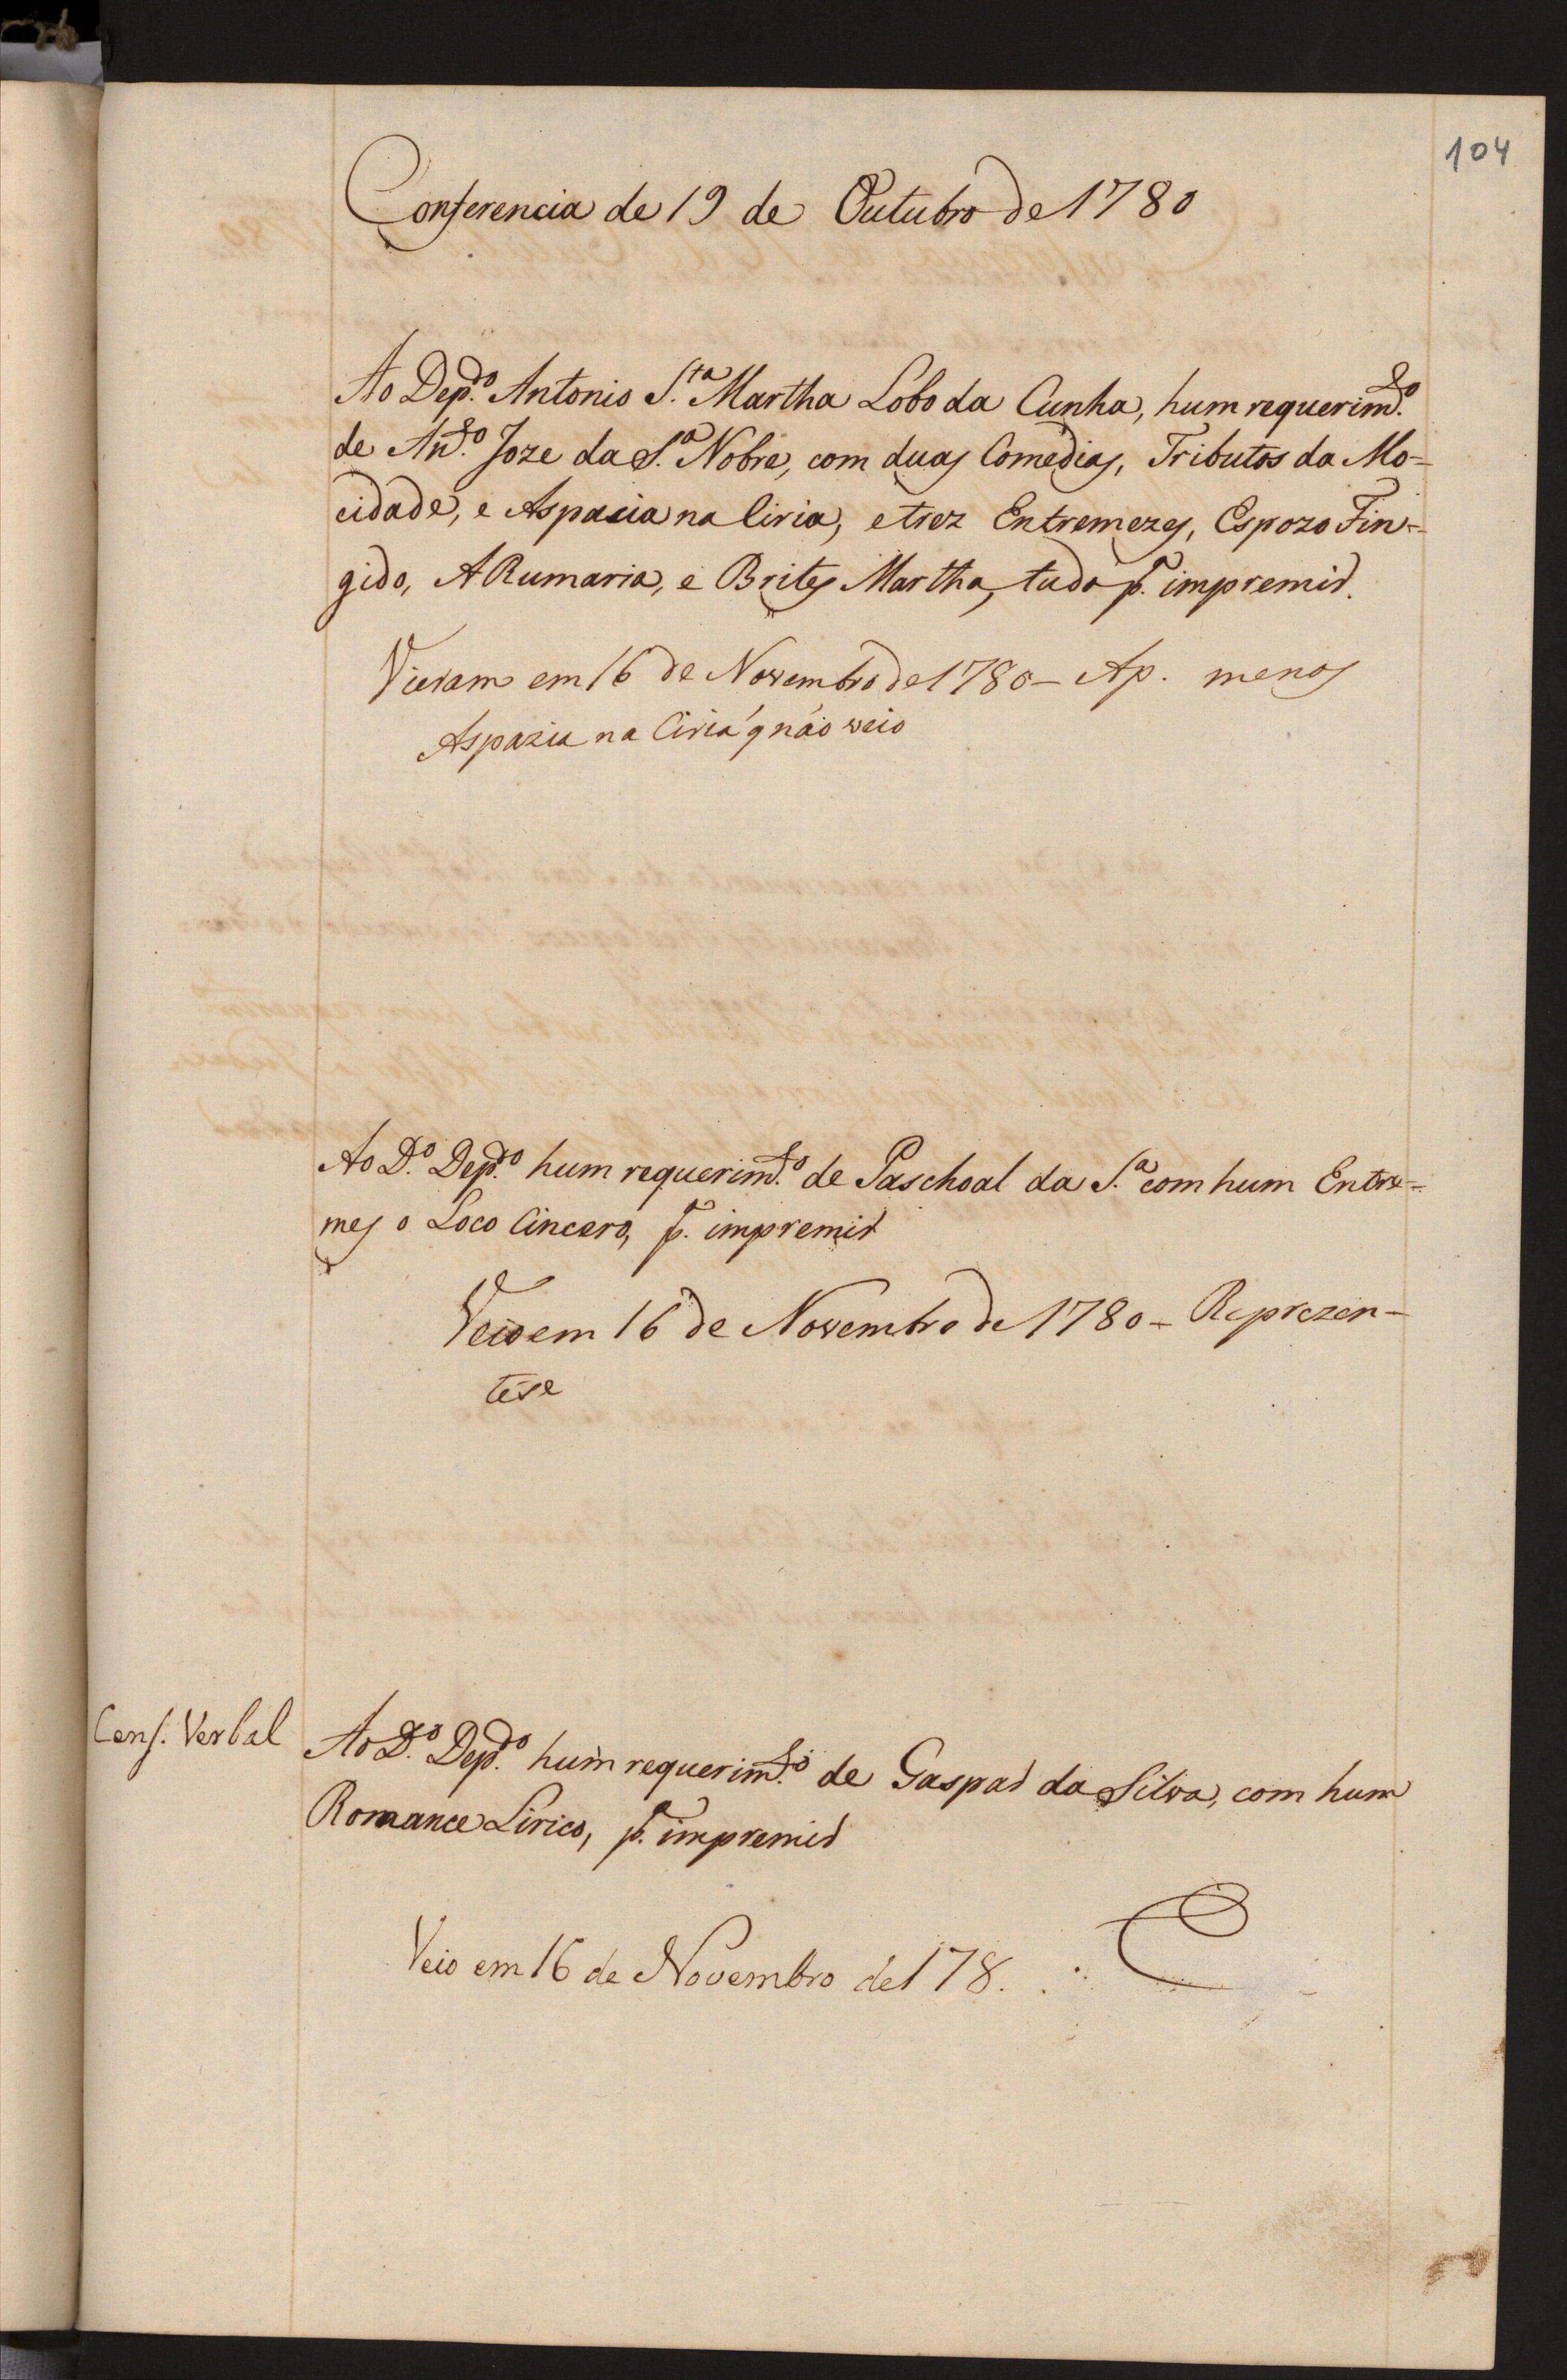 104
Conferencia de 19 de Outubro de 1780
Ao Dep.do Antonio S.ta Martha Lobo da Cunha, hum requerim.to
de An.to Joze da S.a Nobre, com duas Comedias, Tributos da Mo=
cidade, e Aspacia na Ciria, e trez Entremezes, Espozo Fin=
gido, A Rumaria, e Brites Martha, tudo p.a impremir.
Vieram em 16 de Novembro de 1780 – Ap. menos
Aspazia na Ciria q não veio
Ao D.o Dep.do hum requerim.to de Paschoal da S.a com hum Entre=
mes o Loco Cincero, p.a impremir
Veio em 16 de Novembro de 1780 = Reprezen–
tese
Cens. Verbal
Ao D.o Dep.do hum requerim.to de Gaspar da Silva, com hum
Romance Lirico, p.a impremir
Veio em 16 de Novembro de 178.